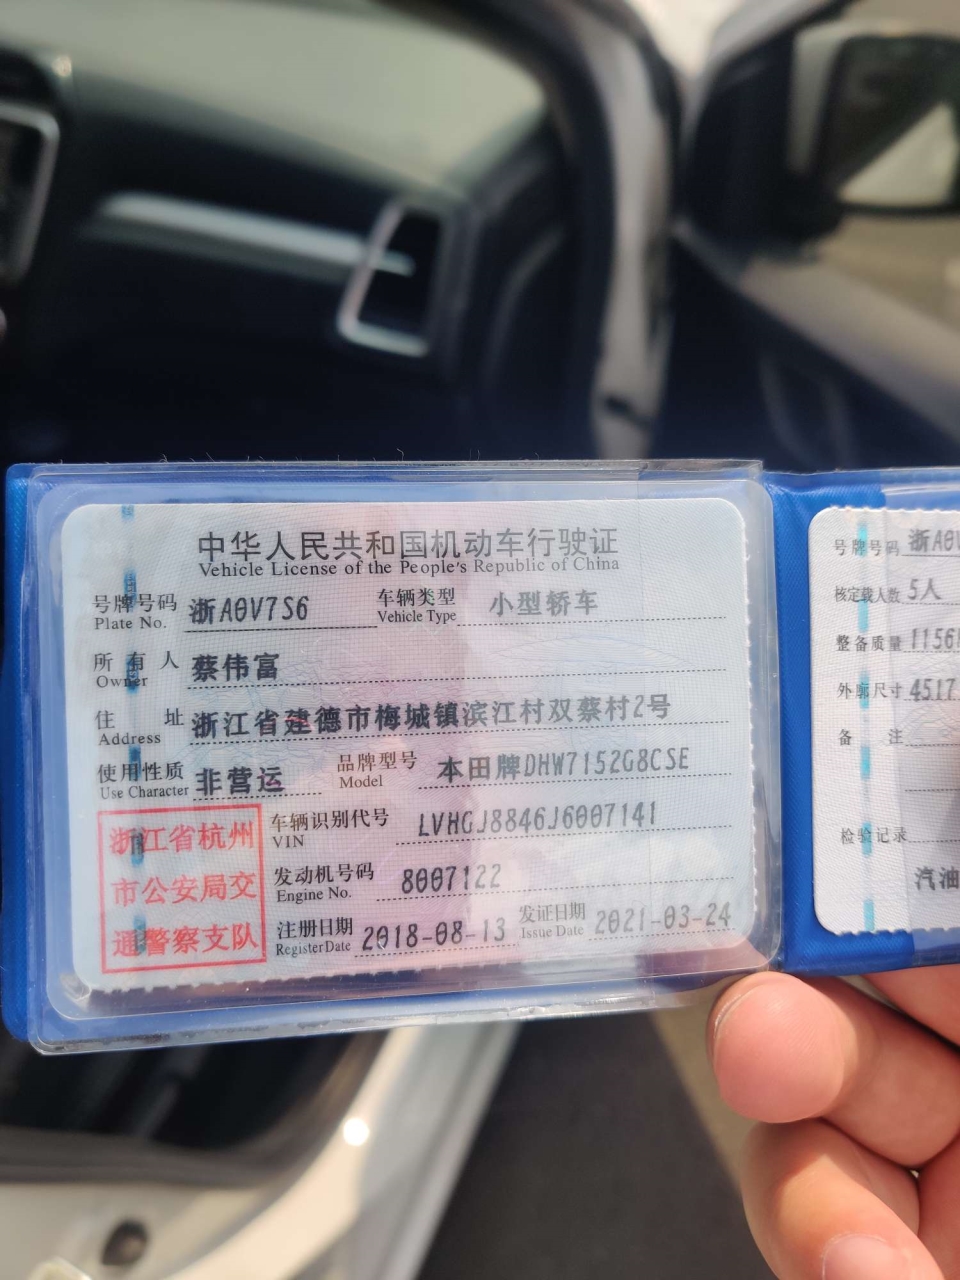 中华人民共和国机动车行驶证
Vehicle License of the People's Republic of China
号牌号码 浙A0V7S6 车辆类型 小型轿车
Plate No. Vehicle Type
所有人 蔡伟富
Owner
住址 浙江省建德市梅城镇滨江村双蔡村2号
Address
使用性质 非营运 品牌型号 本田牌DHW7152G8CSE
Use Character Model
浙江省杭州
市公安局交
通警察支队
车辆识别代号 LVHGJ8846J6007141
VIN
发动机号码 8007122
Engine No.
注册日期 2018-08-13 发证日期 2021-03-24
Register Date Issue Date
号牌号码 浙A0V
核定载人数 5人
整备质量 1156
外廓尺寸 4517
备注
检验记录
汽油